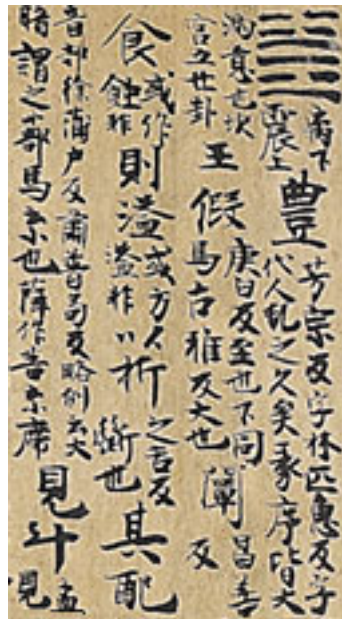 离下震上豐芳宗反字林匹忠反字代人亂之久矣彖序皆大
鴻意也坎宮五世卦王假庚白反至也下同馬古雅反大也闡昌善反
食或作蝕非則溢或方溢非以折之舌反斷也其配
音部徐蒲戶反肅普苟反略例云大暗謂之蔀馬云也薛作菩云席見斗孟見